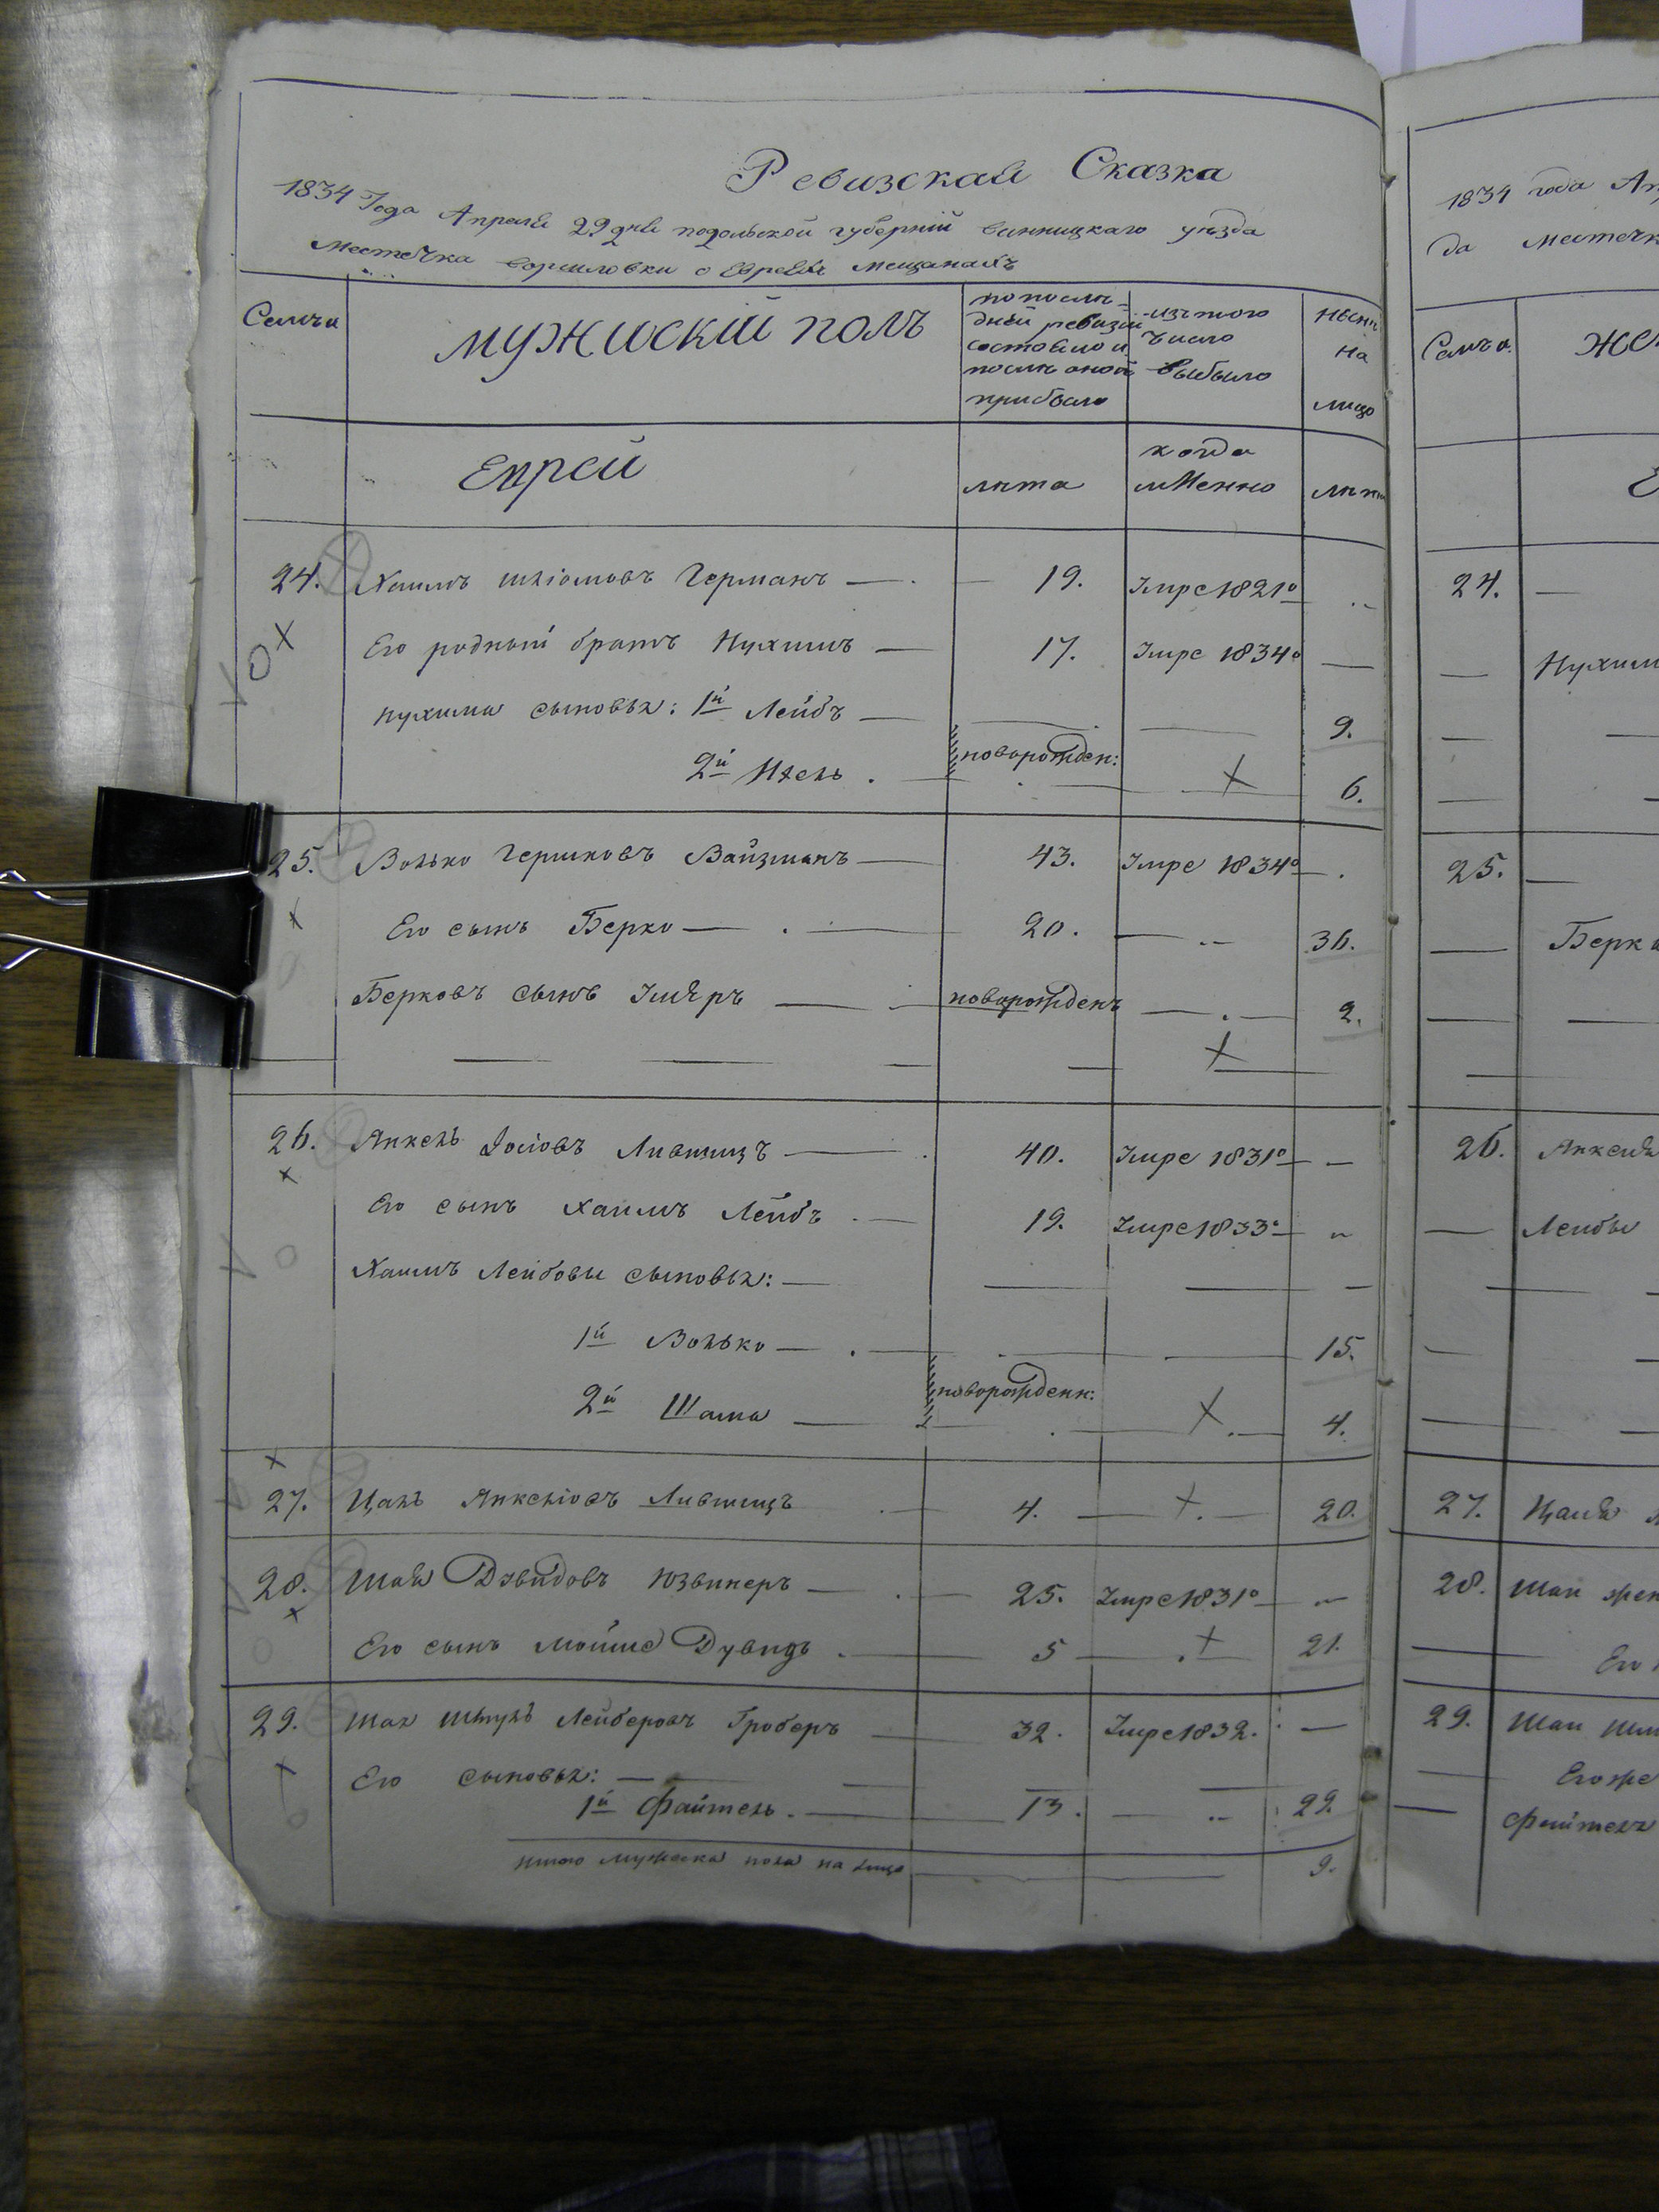 Ревизская Сказка
1834 Года Апреля 29 дня подольской губерній винницкаго уезда
Местечка ворошиловки о Евреях мещанахъ
Семъи
МУЖЕСКІЙ ПОЛЪ
по после-
дней ревизіи
состояло и
после оной
прибыло
изъ того
число
выбыло
ныне
на
лицо
Еврей
лета
когда
имекно
лета
24. Хаимъ шліомовъ Германъ 19. Умре 1821º
Его родный братъ Нухимъ 17. Умре 1834º
нухима сыновья: 1й Лейбъ 9.
2й новорожден: 6.
25. Волько Гершковъ Вайзманъ 43. Умре 1834º
Его сынъ Берко 20. 36.
Берковъ сынъ новорожденъ 2.
26. Янкель Іосіовъ Лившицъ 40. Умре 1831º
Его сынъ хаимъ Лейбъ 19. Умре 1833º
Хаимъ Лейбовы сыновья:
1й Волько 15.
2й новорожденн: 4.
27. Цаль Янкеліовъ Лившицъ 4. 20.
28. Шая Дувидовъ Юзвинеръ 25. Умре 1831º
Его сынъ Мойше Дувидъ 5 21.
29. Шая Шмуль Лейберовъ Гроберъ 32. Умре 1832.
Его сыновья:
1й Файтель. 13. 29.
итого мужеска пола на лицо 9.
1834 года Ап
да местечк
Семъи.
ЖЕ
Е
24.
Нухим
25.
Берк
26. Янкеля
Лейбы
27. Цаля
28. Шаи жен
Его
29. Шаи Шм
Его же
Файтеля